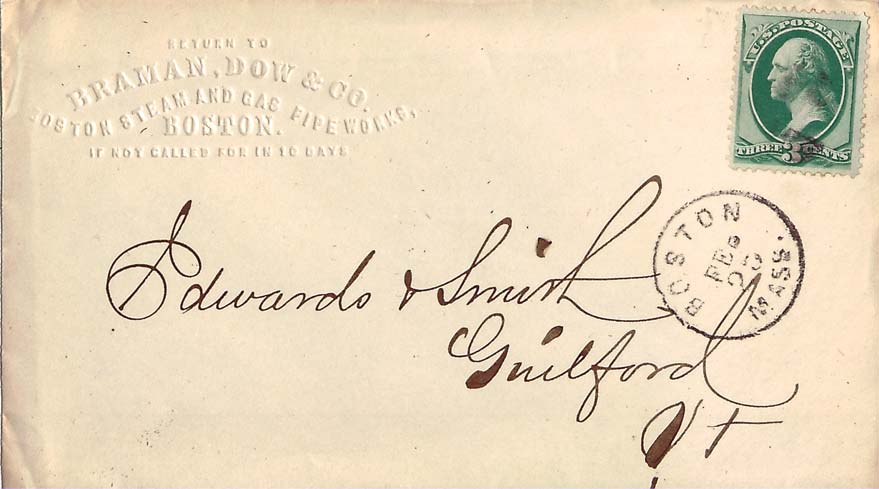 RETURN TO
BRAMAN, DOW & CO.
BOSTON STEAM AND GAS PIPE WORKS,
BOSTON.
IF NOT CALLED FOR IN 10 DAYS
U.S. POSTAGE
THREE 3 CENTS
BOSTON MASS.
FEB
Edwards & Smith
Guilford
Vt